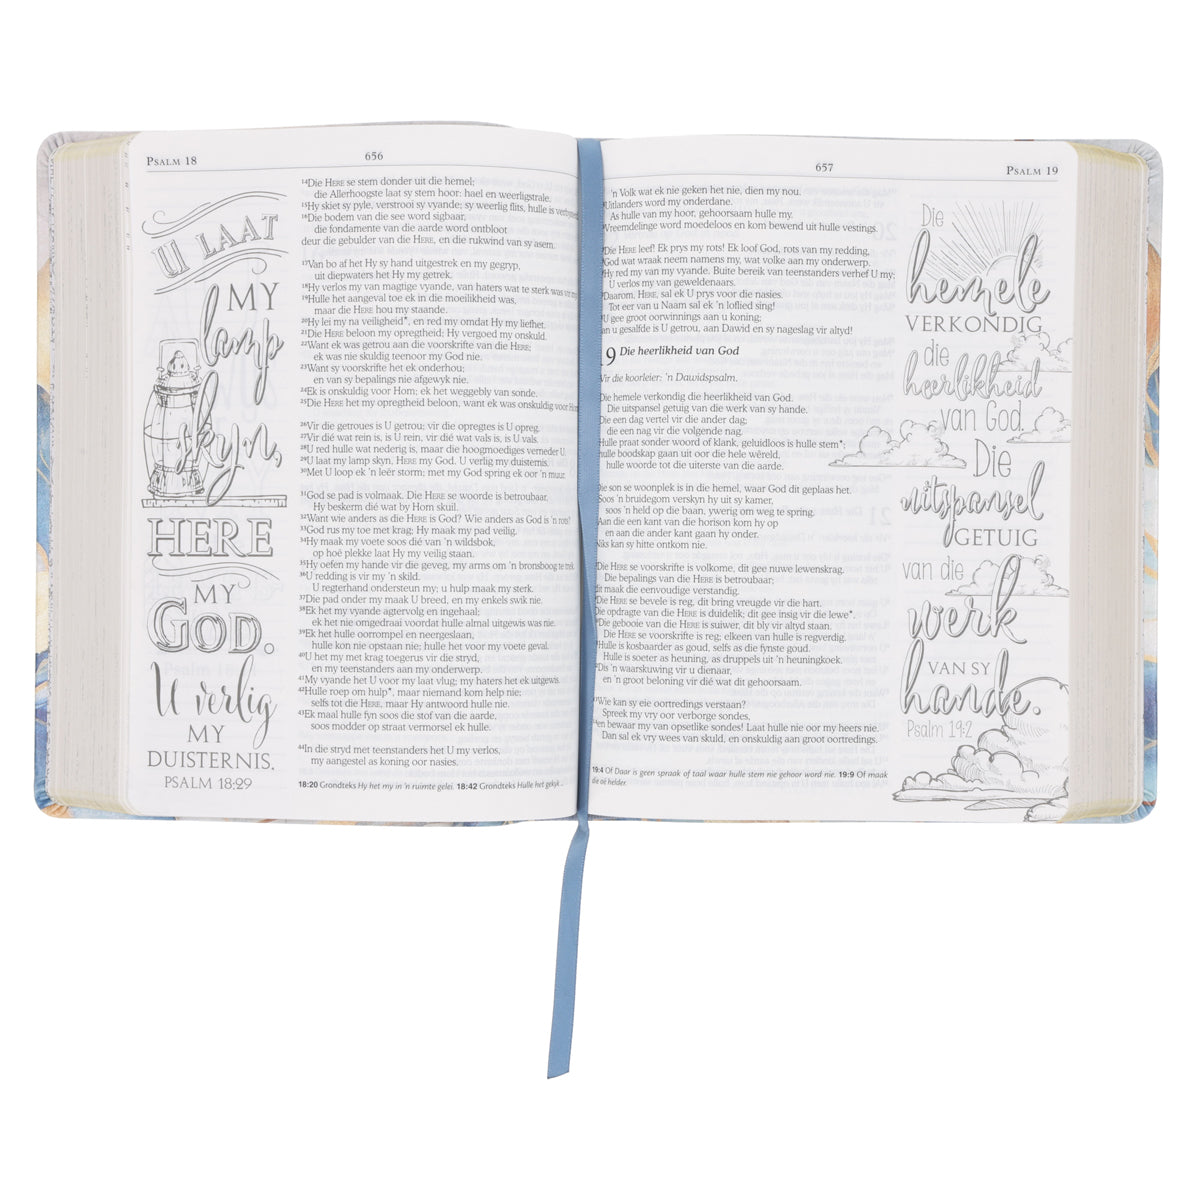 PSALM 18
656
U LAAT
MY
lamp
skyn,
HERE
MY
GOD.
U verlig
MY
DUISTERNIS.
PSALM 18:29
14Die HERE se stem donder uit die hemel;
die Allerhoogste laat sy stem hoor: hael en weerligstrale.
15Hy skiet sy pyle, verstrooi sy vyande; sy weerlig flits, hulle is
16Die bodem van die see word sigbaar,
die fondamente van die aarde word ontbloot
deur die gebulder van die HERE, en die rukwind van sy asem.
17Van bo af het Hy sy hand uitgestrek en my gegryp,
uit diepwaters het Hy my getrek.
18Hy verlos my van magtige vyande, van haters wat te sterk was vir my
19Hulle het aangeval toe ek in die moeilikheid was,
maar die HERE hou my staande.
20Hy lei my na veiligheid*, en red my omdat Hy my liefhet.
21Die HERE beloon my opregtheid; Hy vergoed my onskuld.
22Want ek was getrou aan die voorskrifte van die HERE;
ek was nie skuldig teenoor my God nie.
23Want sy voorskrifte het ek onderhou;
en van sy bepalings nie afgewyk nie.
24Ek is onskuldig voor Hom; ek het weggebly van sonde.
25Die HERE het my opregtheid beloon, want ek was onskuldig voor Hom
26Vir die getroues is U getrou; vir die opregtes is U opreg.
27Vir dié wat rein is, is U rein, vir dié wat vals is, is U vals.
28U red hulle wat nederig is, maar die hoogmoediges verneder U.
29U laat my lamp skyn, HERE my God. U verlig my duisternis.
30Met U loop ek 'n leër storm; met my God spring ek oor 'n muur.
31God se pad is volmaak. Die HERE se woorde is betroubaar,
Hy beskerm dié wat by Hom skuil.
32Want wie anders as die HERE is God? Wie anders as God is 'n rots!
33God rus my toe met krag; Hy maak my pad veilig.
34Hy maak my voete soos dié van 'n wildsbok,
op hoë plekke laat Hy my veilig staan.
35Hy oefen my hande vir die geveg, my arms om 'n bronsboog te trek.
36U redding is vir my 'n skild.
U regterhand ondersteun my; u hulp maak my sterk.
37Die pad onder my maak U breed, en my enkels swik nie.
38Ek het my vyande agtervolg en ingehaal;
ek het nie omgedraai voordat hulle almal uitgewis was nie.
39Ek het hulle oorrompel en neergeslaan,
hulle kon nie opstaan nie; hulle het voor my voete geval.
40U het my met krag toegerus vir die stryd,
en my teenstanders aan my onderwerp.
41My vyande het U voor my laat vlug; my haters het ek uitgewis.
42Hulle roep om hulp*, maar niemand kom help nie;
selfs tot die HERE, maar Hy antwoord hulle nie.
43Ek maal hulle fyn soos die stof van die aarde,
soos modder op straat vermorsel ek hulle.
44In die stryd met teenstanders het U my verlos,
my aangestel as koning oor nasies.
18:20 Grondteks Hy het my in 'n ruimte gelei. 18:42 Grondteks Hulle het gekyk
657
PSALM 19
'n Volk wat ek nie geken het nie, dien my nou.
Uitlanders word my onderdane.
As hulle van my hoor, gehoorsaam hulle my.
Vreemdelinge word moedeloos en kom bewend uit hulle vestings.
Die HERE leef! Ek prys my rots! Ek loof God, rots van my redding,
God wat wraak neem namens my, wat volke aan my onderwerp.
Hy red my van my vyande. Buite bereik van teenstanders verhef U my;
U verlos my van geweldenaars.
Daarom, HERE, sal ek U prys voor die nasies.
Tot eer van u Naam sal ek 'n loflied sing!
U gee groot oorwinnings aan u koning;
aan u gesalfde is U getrou, aan Dawid en sy nageslag vir altyd!
9 Die heerlikheid van God
Vir die koorleier: 'n Dawidspsalm.
Die hemele verkondig die heerlikheid van God.
Die uitspansel getuig van die werk van sy hande.
Die een dag vertel vir die ander dag;
die een nag vir die volgende nag.
Hulle praat sonder woord of klank, geluidloos is hulle stem*;
hulle boodskap gaan uit oor die hele wêreld,
hulle woorde tot die uiterste van die aarde.
Die son se woonplek is in die hemel, waar God dit geplaas het.
Soos 'n bruidegom verskyn hy uit sy kamer,
soos 'n held op die baan, ywerig om weg te spring.
Aan die een kant van die horison kom hy op
en aan die ander kant gaan hy onder.
Niks kan sy hitte ontkom nie.
Die HERE se voorskrifte is volkome, dit gee nuwe lewenskrag.
Die bepalings van die HERE is betroubaar;
dit maak die eenvoudige verstandig.
Die HERE se bevele is reg, dit bring vreugde vir die hart.
Die opdragte van die HERE is duidelik; dit gee insig vir die lewe*.
Die gebooie van die HERE is suiwer, dit bly vir altyd staan.
Die HERE se voorskrifte is reg; elkeen van hulle is regverdig.
Hulle is kosbaarder as goud, selfs as die fynste goud.
Hulle is soeter as heuning, as druppels uit 'n heuningkoek.
Dis 'n waarskuwing vir u dienaar,
en 'n groot beloning vir dié wat dit gehoorsaam.
Wie kan sy eie oortredings verstaan?
Spreek my vry oor verborge sondes,
en bewaar my van opsetlike sondes! Laat hulle nie oor my heers nie.
Dan sal ek vry wees van skuld, en onskuldig aan groot oortredings.
19:4 Of Daar is geen spraak of taal waar hulle stem nie gehoor word nie. 19:9 Of maak
die oë helder.
Die
hemele
VERKONDIG
die
heerlikheid
van God.
Die
uitspansel
GETUIG
van die
werk
VAN SY
hande.
Psalm 19:2